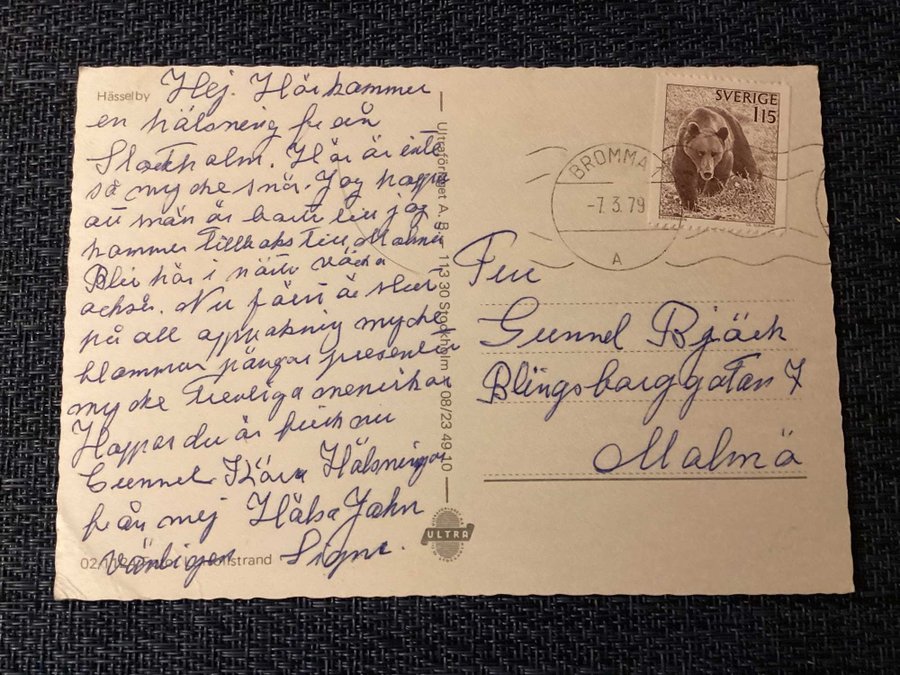 Hässelby
Hej. Här kommer
en hälsning från
Stockholm. Här är inte
så mycke snö. Jag hoppas
att snön är borta till jag
kommer tillbaks till Malmö
Blir här i nästa vecka
också. Nu
på all uppvaktning mycke
blommor pängar presenter
mycke trevliga meniskor
Hoppas du är frisk nu
Gunnel Kära Hälsningar
från mej Hälsa John
Vänligen Signe.
strand
Ultraförlaget A. B. 113 30 Stockholm 08/23 49 10
ULTRA
SVERIGE
115
BROMMA
-7.3.79
A
Fru
Gunnel Bjäck
Blingsborggatan 7
Malmö